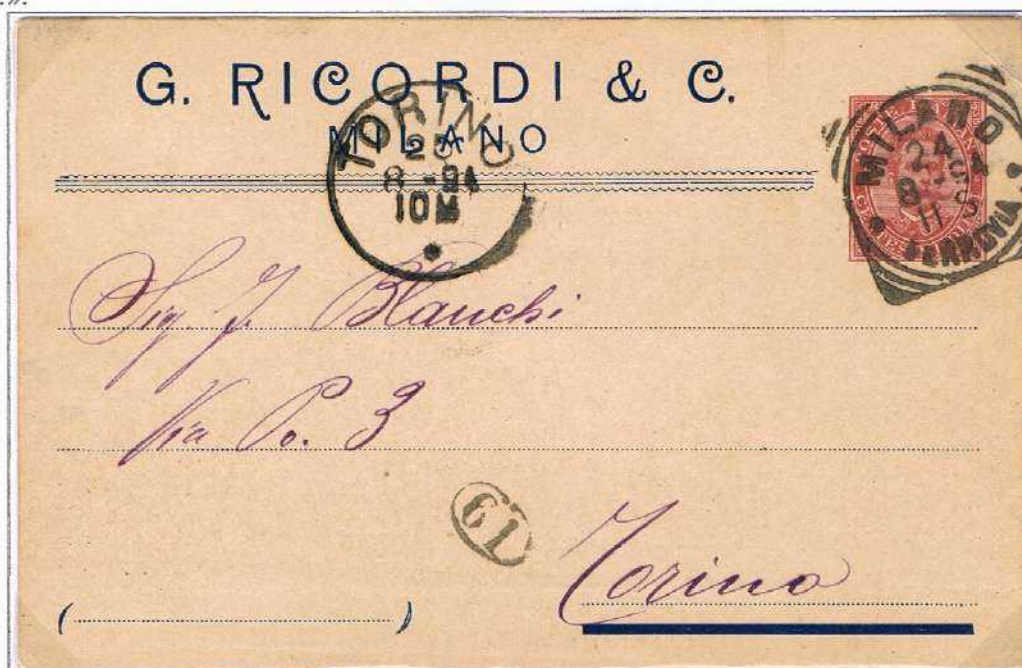 G. RICORDI & C.
MILANO
TORINO
25
8-94
10M
POSTE ITALIANE
MILANO
24
8-94
11 S
FERROVIA
Sig. J. Blanchi
Via Po. 3
61
Torino
( )